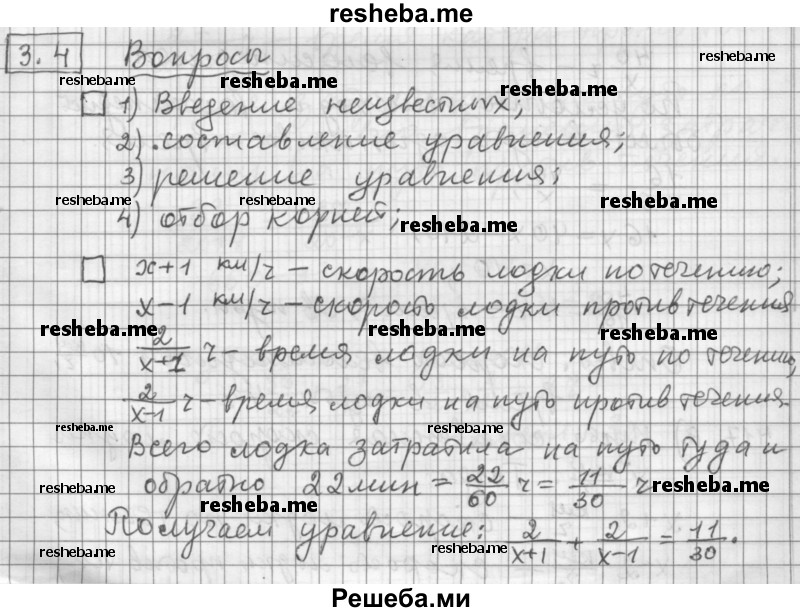 resheba.me
3.4 Вопросы
resheba.me
resheba.me resheba.me resheba.me
1) Введение неизвестных;
2) составление уравнения;
3) решение уравнения;
resheba.me resheba.me resheba.me
4) отбор корней;
resheba.me
x+1 км/ч – скорость лодки по течению;
x-1 км/ч – скорость лодки против течения
resheba.me resheba.me resheba.me
2/(x+1) ч – время лодки на путь по течению,
2/(x-1) ч – время лодки на путь против течения.
resheba.me resheba.me
Всего лодка затратила на путь туда и
обратно 22 мин = 22/60 ч = 11/30 ч
resheba.me resheba.me resheba.me
Получаем уравнение: 2/(x+1) + 2/(x-1) = 11/30.
resheba.me resheba.me
Решеба.ми